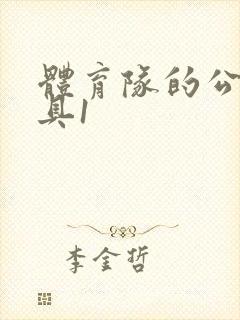 體育隊的公
具1
李金哲